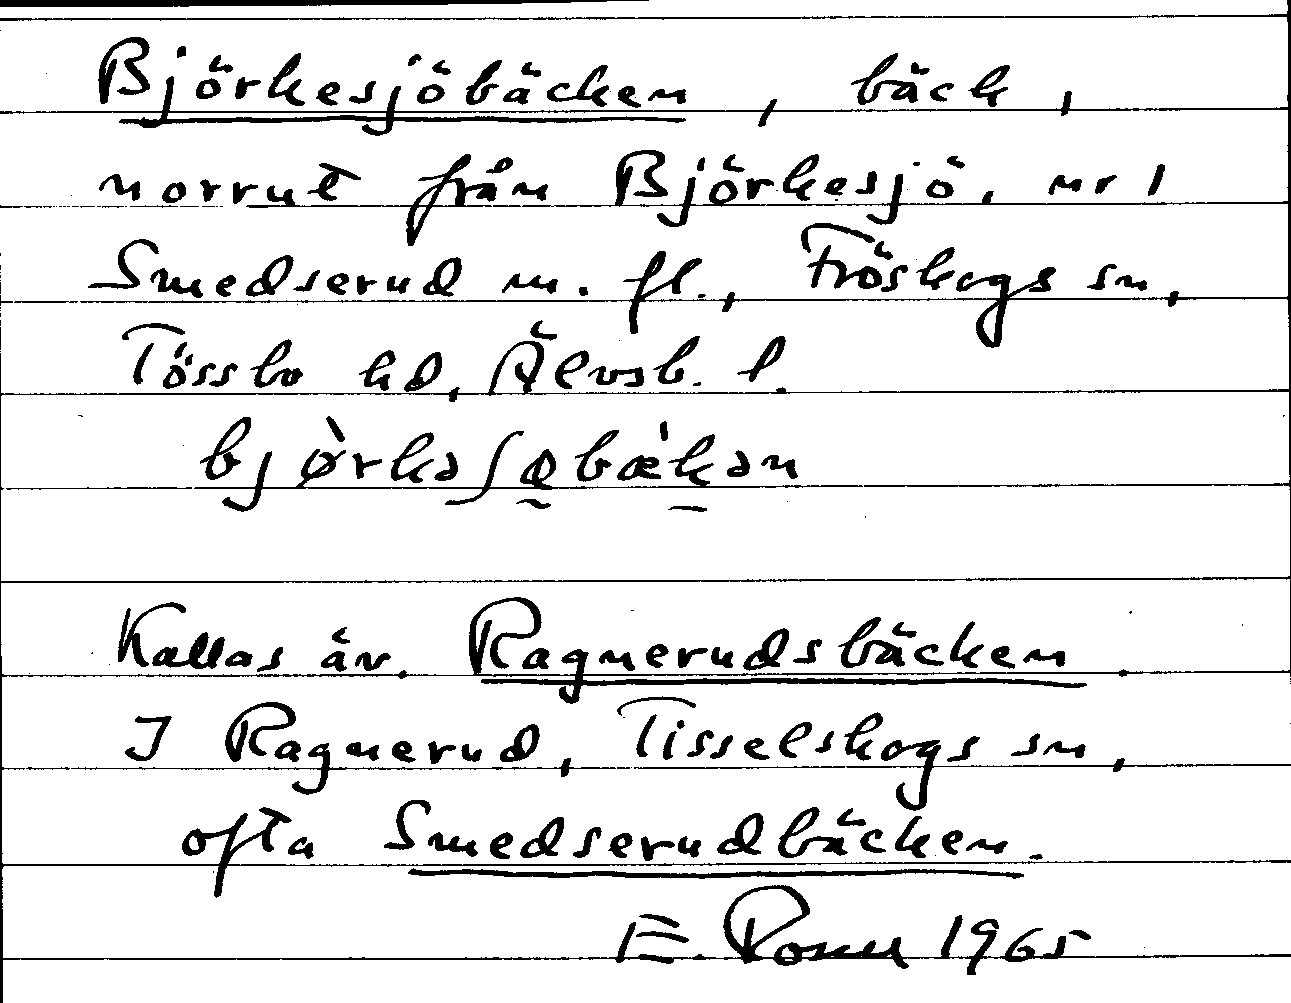 Björkesjöbäcken, bäck,
norrut från Björkesjö, nr 1
Smedserud m. fl., Fröskogs sn,
Tössbo hd, Älvsb. l.
Kallas äv. Ragnerudsbäcken.
I Ragnerud, Tisselskogs sn,
ofta Smedserudbäcken.
E. 1965